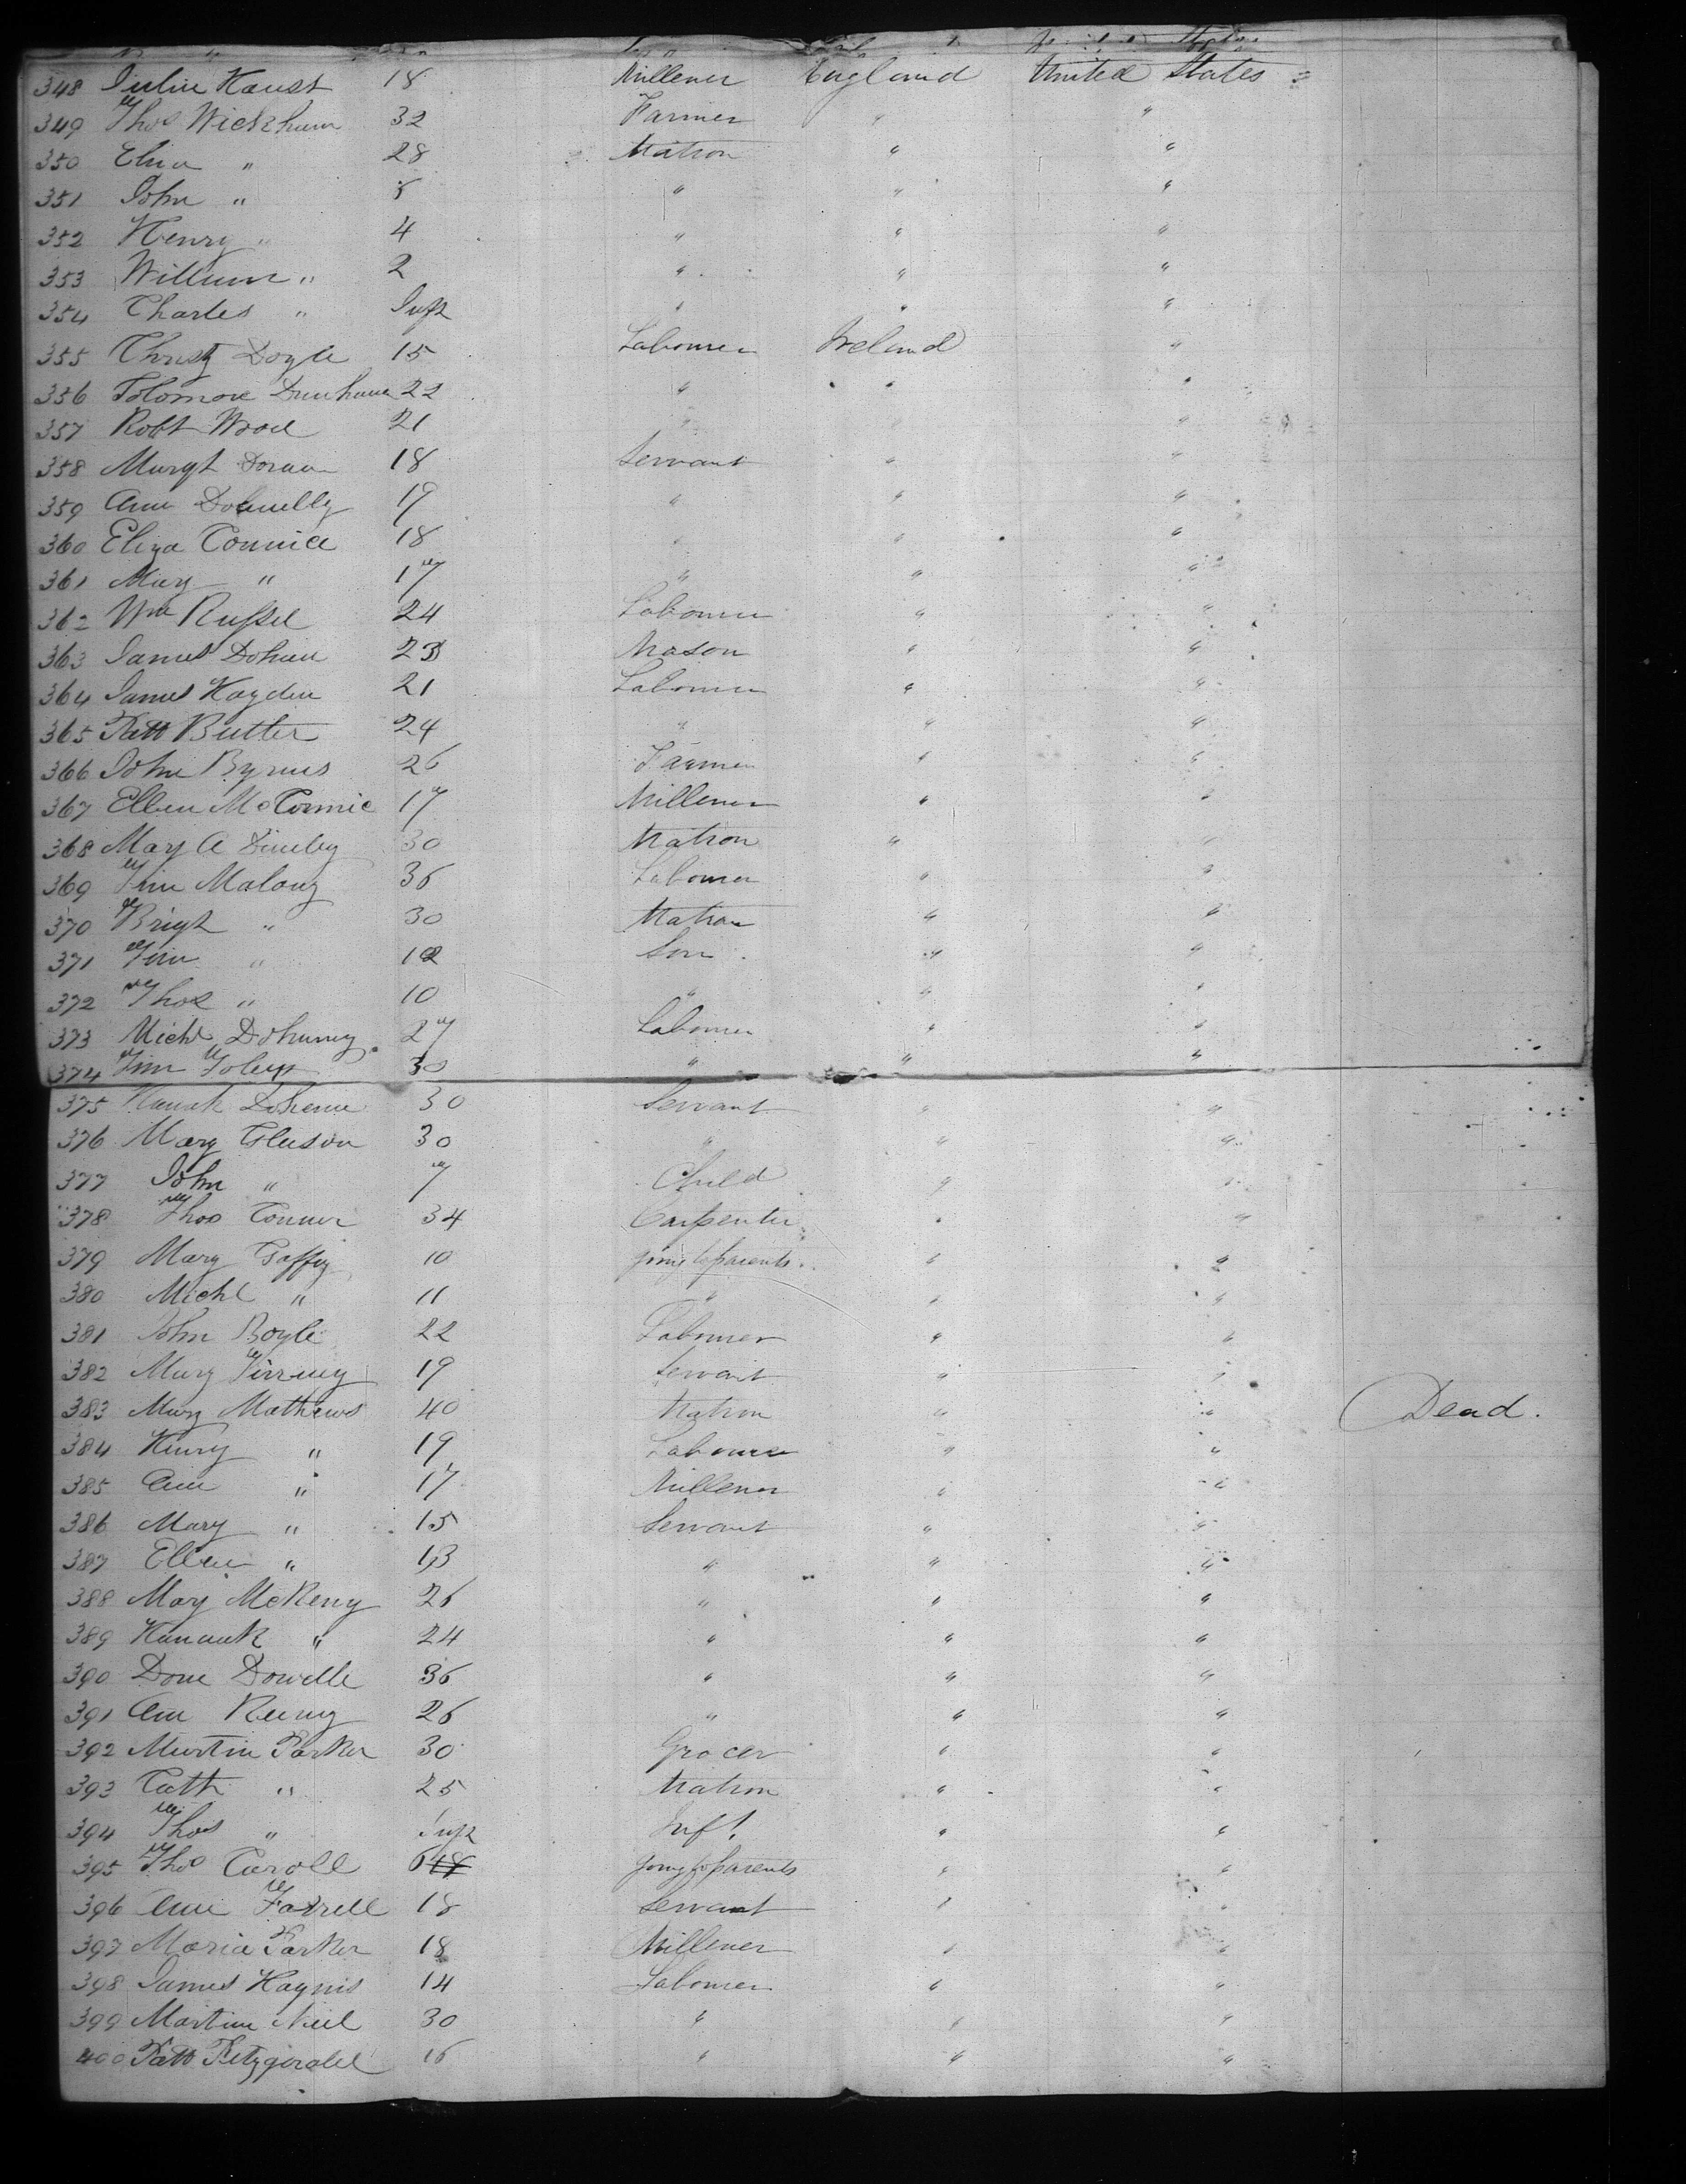 348 Julia Haust 18 Millener England United States
349 Thos Wickham 32 Farmer " "
350 Eliza " 28 Matron " "
351 John " 8 " " "
352 Henry " 4 " " "
353 William " 2 " " "
354 Charles " Inft " " "
355 Christy Doyle 15 Labourer Ireland "
356 Solomon Dunham 22 " " "
357 Robt Wood 21 " " "
358 Margt Doran 18 Servant " "
359 Ann Donnelly 19 " " "
360 Eliza Connice 18 " " "
361 Mary " 17 " " "
362 Wm Russel 24 Labourer " "
363 James 23 Mason " "
364 James Hayden 21 Labourer " "
365 Patt Butler 24 " " "
366 John Byrnes 26 Farmer " "
367 Ellen McCormic 17 Millener " "
368 Mary A 30 Matron " "
369 Tim Malony 36 Labourer " "
370 Brigt " 30 Matron " "
371 Tim " 12 Son " "
372 Thos " 10 " " "
373 Michl Dohunny 27 Labourer " "
374 Tim 30 " " "
375 Hanah 30 Servant " "
376 Mary Gleeson 30 " " "
377 John " 7 Child " "
378 Thos Conner 34 Carpenter " "
379 Mary Gaffey 10 going to parents " "
380 Michl " 11 " " "
381 John Boyle 22 Labourer " "
382 Mary 19 Servant " "
383 Mary Mathews 40 Matron " " Dead.
384 Henry " 19 Labourer " "
385 Ann " 17 Millener " "
386 Mary " 15 Servant " "
387 Ellen " 13 " " "
388 Mary McKeny 26 " " "
389 Hanauh " 24 " " "
390 Dowelle 36 " " "
391 Ann 26 " " "
392 Martin Parker 30 Grocer " "
393 Cath " 25 Matron " "
394 Thos " Inft Inft. " "
395 Thos Caroll 6 going to parents " "
396 Ann Farrell 18 Servant " "
397 Maria Parker 18 Millener " "
398 James Haynis 14 Labourer " "
399 Martin Neil 30 " " "
400 Patt Fitzgerald 16 " " "